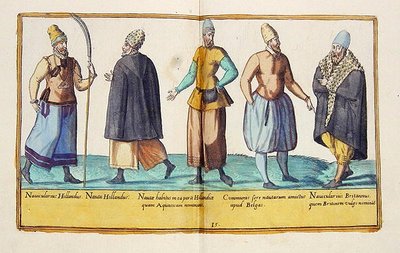 Nauicularius Hollandus.
Nauta Hollandus.
Nautæ habitus in ea parte Hollandiæ
quam Aquaticam nominant.
Communis fere nautarum amictus
apud Belgas.
Nauicularius Britannus,
quem Britanum vulgo nominant.
15.